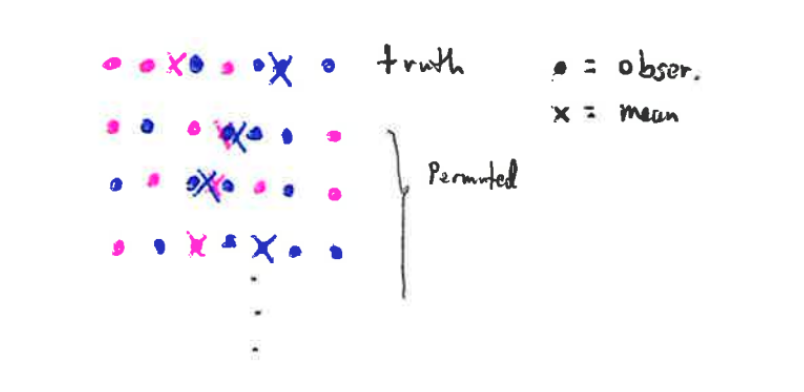 truth
• = obser.
x = mean
Permuted